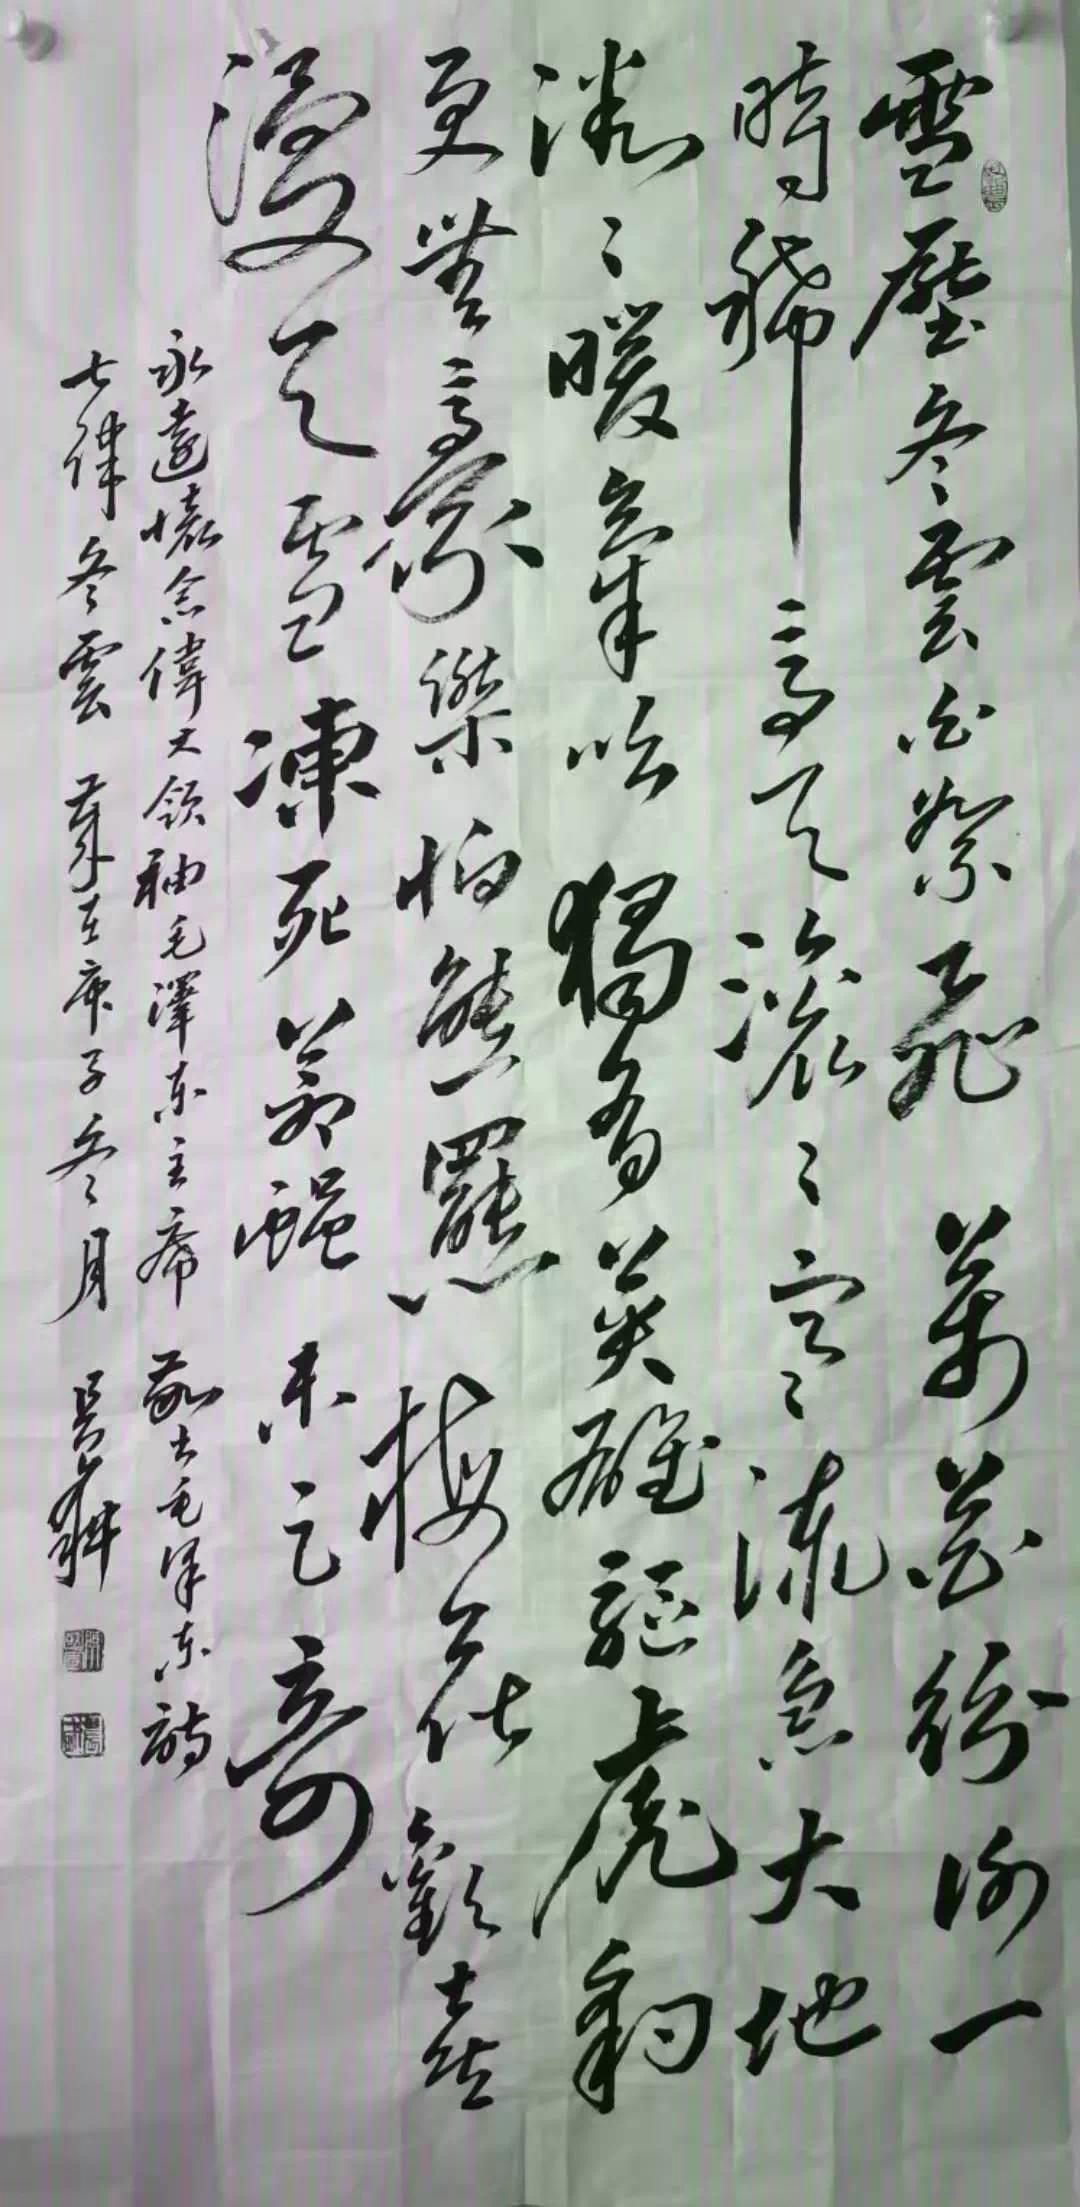 雪壓冬雲白絮飛萬花紛謝一
時稀高天滚々寒流急大地
微々暖氣吹獨有英雄驅虎豹
更無豪傑怕熊羆梅花歡喜
漫天雪凍死蒼蠅未足奇
永遠懷念偉大領袖毛澤東主席敬書毛澤東詩
七律冬雲 歲在庚子冬月